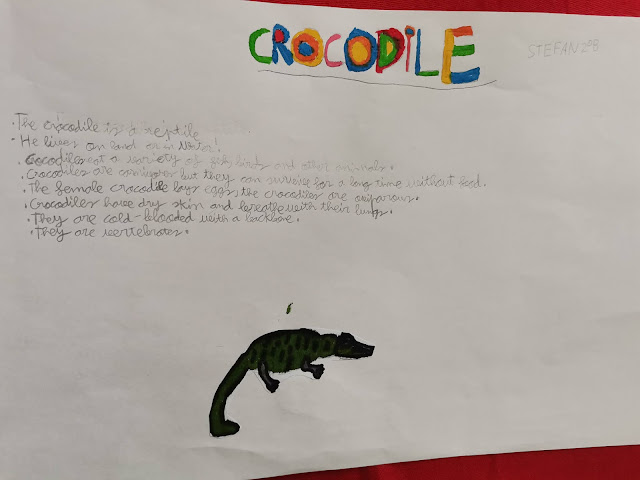 CROCODILE
STEFAN 2ºB
· The crocodile is a reptile
· He lives on land or in water!
· Cocodiles eat a variety of fish, birds and other animals.
· Crocodiles are carnivores but they can survive for a long time without food.
· The female crocodile lays eggs the crocodiles are oviparous.
· Crocodiles have dry skin and breathe with their lungs.
· They are cold-blooded with a backbone.
· They are vertebrates.